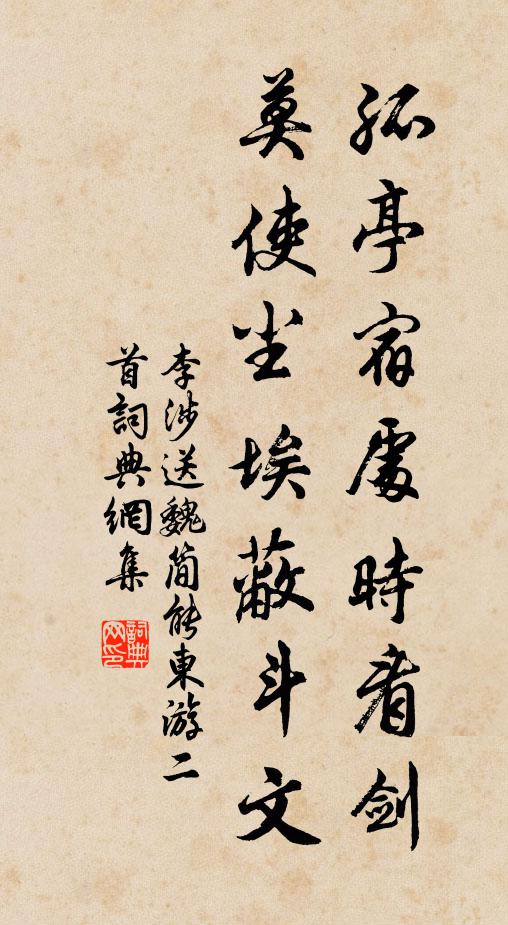 孤亭宿處時看劍
莫使尘埃蔽斗文
李涉送魏简能東游二
首詞典網集
詞典網印